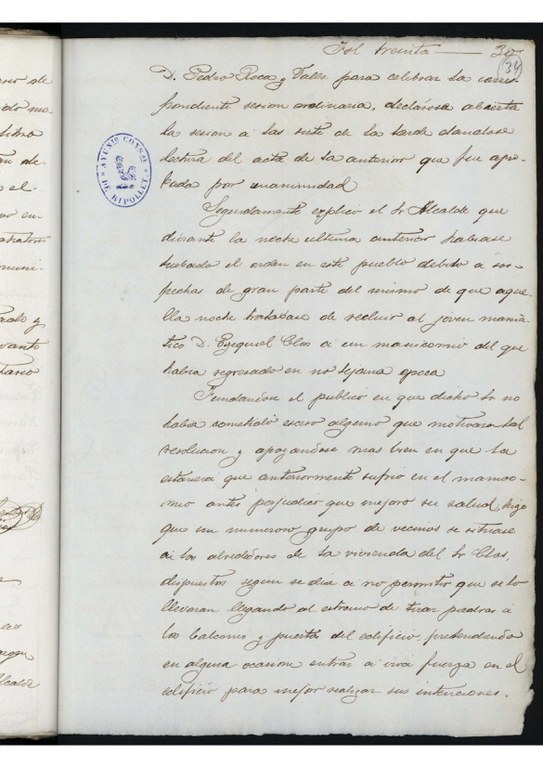 Fol treinta — 30
(34)
D. Pedro Roca y Valls para celebrar la corres-
pondiente sesion ordinaria, declárose abierta
la sesion a las siete de la tarde dandose
lectura del acta de la anterior que fue apro-
bada por unanimidad
Seguidamente explicó el Sr Alcalde que
durante la noche ultima anterior habiase
turbado el orden en este pueblo debido a sos-
pechas de gran parte del mismo de que aque-
lla noche tratabase de recluir al joven maniá-
tico D. Ezequiel Clos á un manicomio del que
habia regresado en no lejana epoca
Fundandose el publico en que dicho Sr no
habia cometido exceso alguno que motivara tal
resolucion y apoyandose mas bien en que la
estancia que anteriormente sufrio en el manico-
mio antes perjudicó que mejoró su salud, hizo
que un numeroso grupo de vecinos se situase
á los alrededores de la vivienda del Sr Clos,
dispuestos segun se dice a no permitir que se lo
llevaran llegando al estremo de tirar piedras á
los balcones y puerta del edificio, pretendiendo
en alguna ocasion entrar á viva fuerza en el
edificio para mejor realizar sus intenciones.
AYUNTº CONSAL DE RIPOLLET